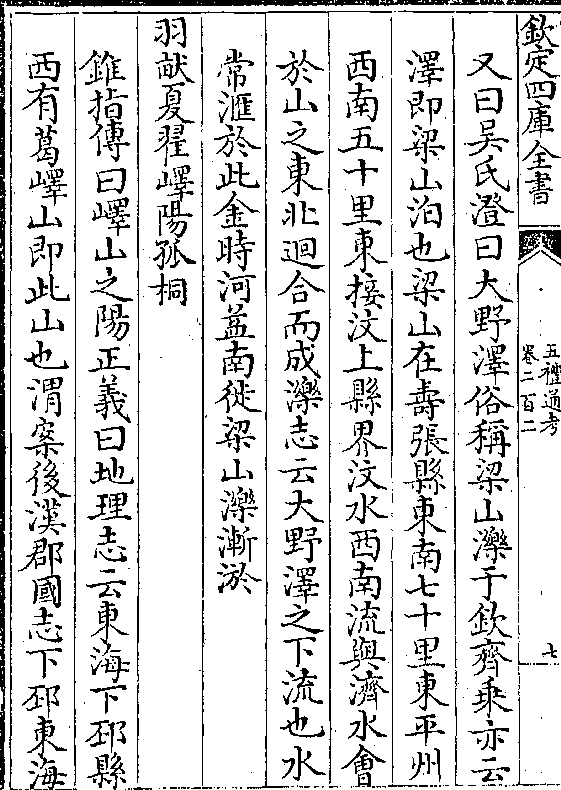 欽定四庫全書
五禮通考
卷二百二
七
又曰吳氏澄曰大野澤俗稱梁山濼于欽齊乗亦云
澤即梁山泊也梁山在壽張縣東南七十里東平州
西南五十里東接汶上縣界汶水西南流與濟水會
於山之東北迴合而成濼志云大野澤之下流也水
常滙於此金時河益南徙梁山濼漸淤
羽畎夏翟嶧陽孤桐
錐指傳曰嶧山之陽正義曰地理志云東海下邳縣
西有葛嶧山即此山也渭案後漢郡國志下邳東海